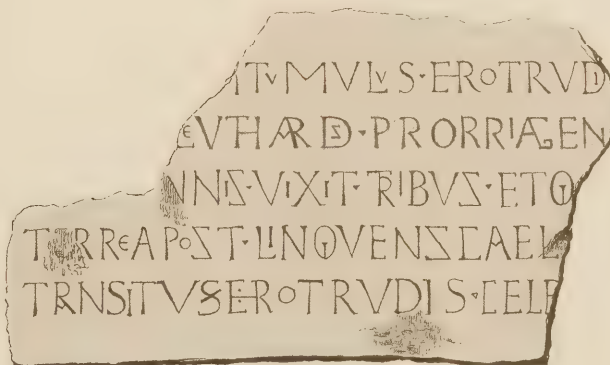 IT·MVLVS·EROTRVDI
EVTHARDS·PRORRIAGEN
NNIS·VIXIT·TRIBVS·ETO
TERREAPOST·LINQVENSCAEL
TRANSITVSEROTRVDIS·CELE